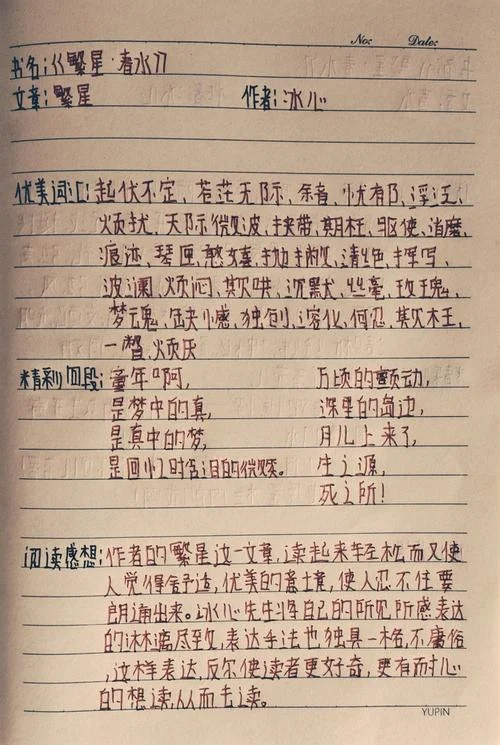 No: Date:
书名:《繁星·春水》
文章:繁星 作者:冰心
优美词汇:起伏不定、苍茫无际、余音、忧郁、浮泛、
烦扰、天际微波、挟带、期枉、驱使、消磨、
痕迹、琴匣、憨嬉、抛掷、清绝、描写、
波澜、烦闷、欺哄、沉默、丝毫、玫瑰、
梦魂、缺憾、独创、溶化、何忍、欺枉、
一瞥、烦厌
精彩回段:童年啊, 万顷的颤动,
是梦中的真, 深黑的岛边,
是真中的梦, 月儿上来了,
是回忆时含泪的微笑。 生之源,
死之所!
阅读感想:作者的繁星这一文章,读起来轻松而又使
人觉得舒适,优美的意境,使人忍不住要
朗诵出来。冰心先生将自己的所见所感表达
的淋漓尽致,表达手法也独具一格,不庸俗
,这样表达,反尔使读者更好奇,更有耐心
的想读,从而去读。
YUPIN